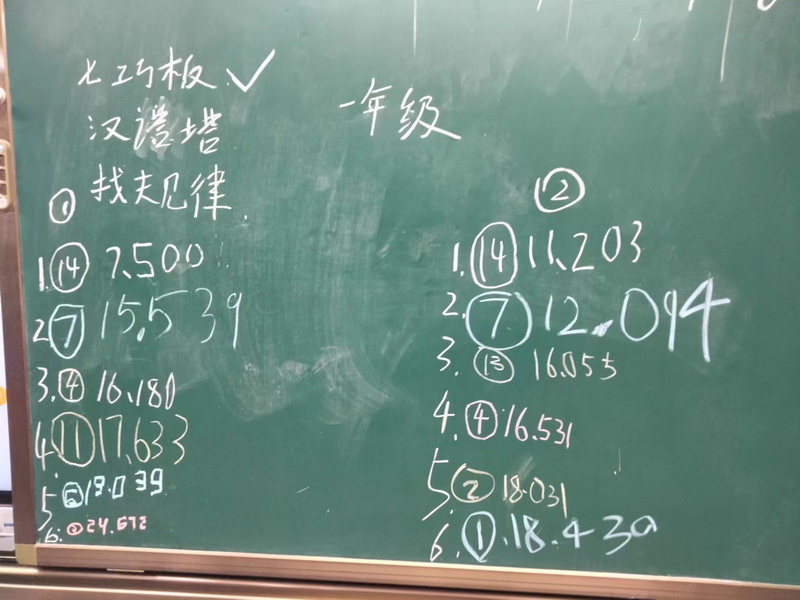 七巧板 ✓
汉诺塔
找规律
一年级
①
1. ⑭ 7.500
2. ⑦ 15.539
3. ④ 16.180
4. ⑪ 17.633
5. 19.039
6. 24.672
②
1. ⑭ 11.203
2. ⑦ 12.094
3. ⑬ 16.055
4. ④ 16.531
5. ② 18.031
6. ① 18.430